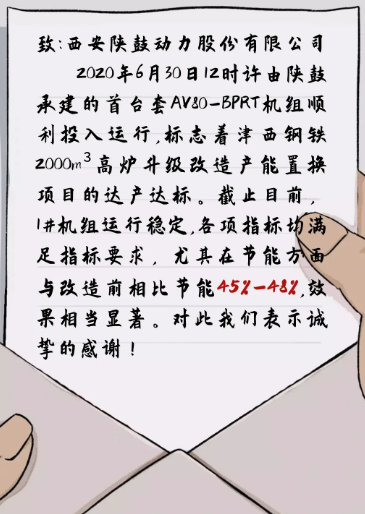 致:西安陕鼓动力股份有限公司
2020年6月30日12时许由陕鼓
承建的首台套AV80-BPRT机组顺
利投入运行,标志着津西钢铁
2000m³高炉升级改造产能置换
项目的达产达标。截止目前,
1#机组运行稳定,各项指标均满
足指标要求，尤其在节能方面
与改造前相比节能45%-48%,效
果相当显著。对此我们表示诚
挚的感谢！